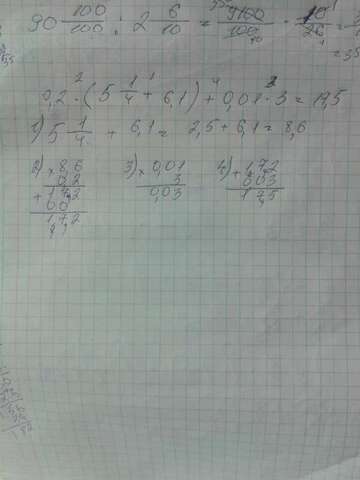 90 100/100 : 2 6/10 = 9100/100 · 10/26 =
0,2 · (5 1/4 + 6,1) + 0,01 · 3 = 17,5
1) 5 1/4 + 6,1 = 2,5 + 6,1 = 8,6
2) × 8,6 3) × 0,01 4) + 1,72
0,2 3 0,03
+ 1 7 2 0,03 1,75
0 0
1,7 2